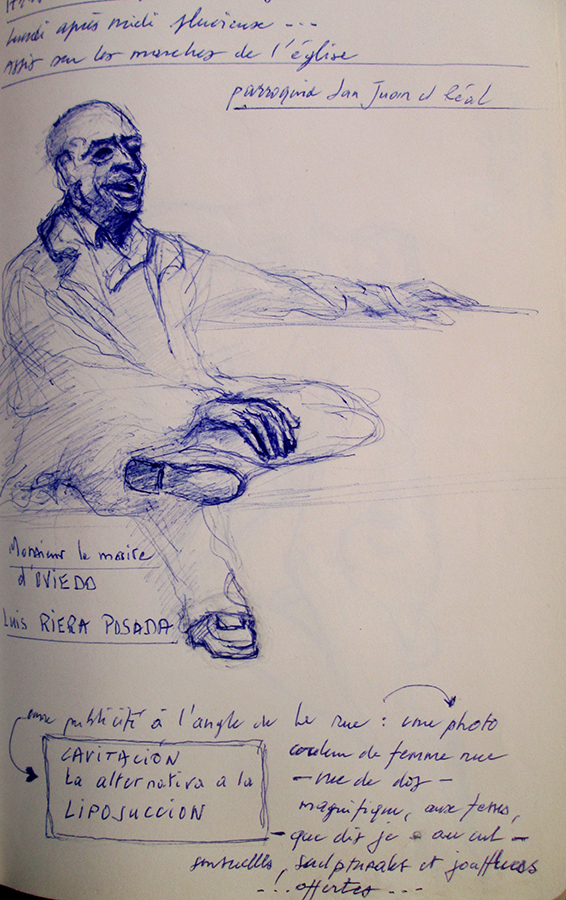 lundi après midi pluvieuse ...
assis sur les marches de l'église
parroquia San Juan el Réal
Monsieur le maire
d'OVIEDO
Luis RIERA POSADA
une publicité à l'angle de la rue : une photo
couleur de femme nue
CAVITACION
La alternativa a la
LIPOSUCCION
- vue de dos -
magnifique, aux fesses,
- que dis je - au cul -
sensuelles, sculpturales et joufflues
... offertes ...